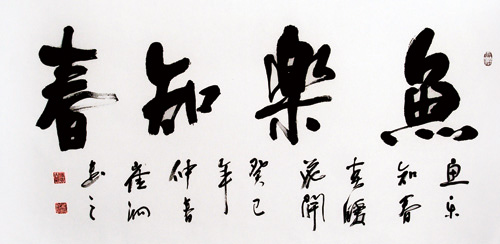 魚樂知春
魚乐
知春
春暖
花開
癸巳
年
仲春
崔
書之